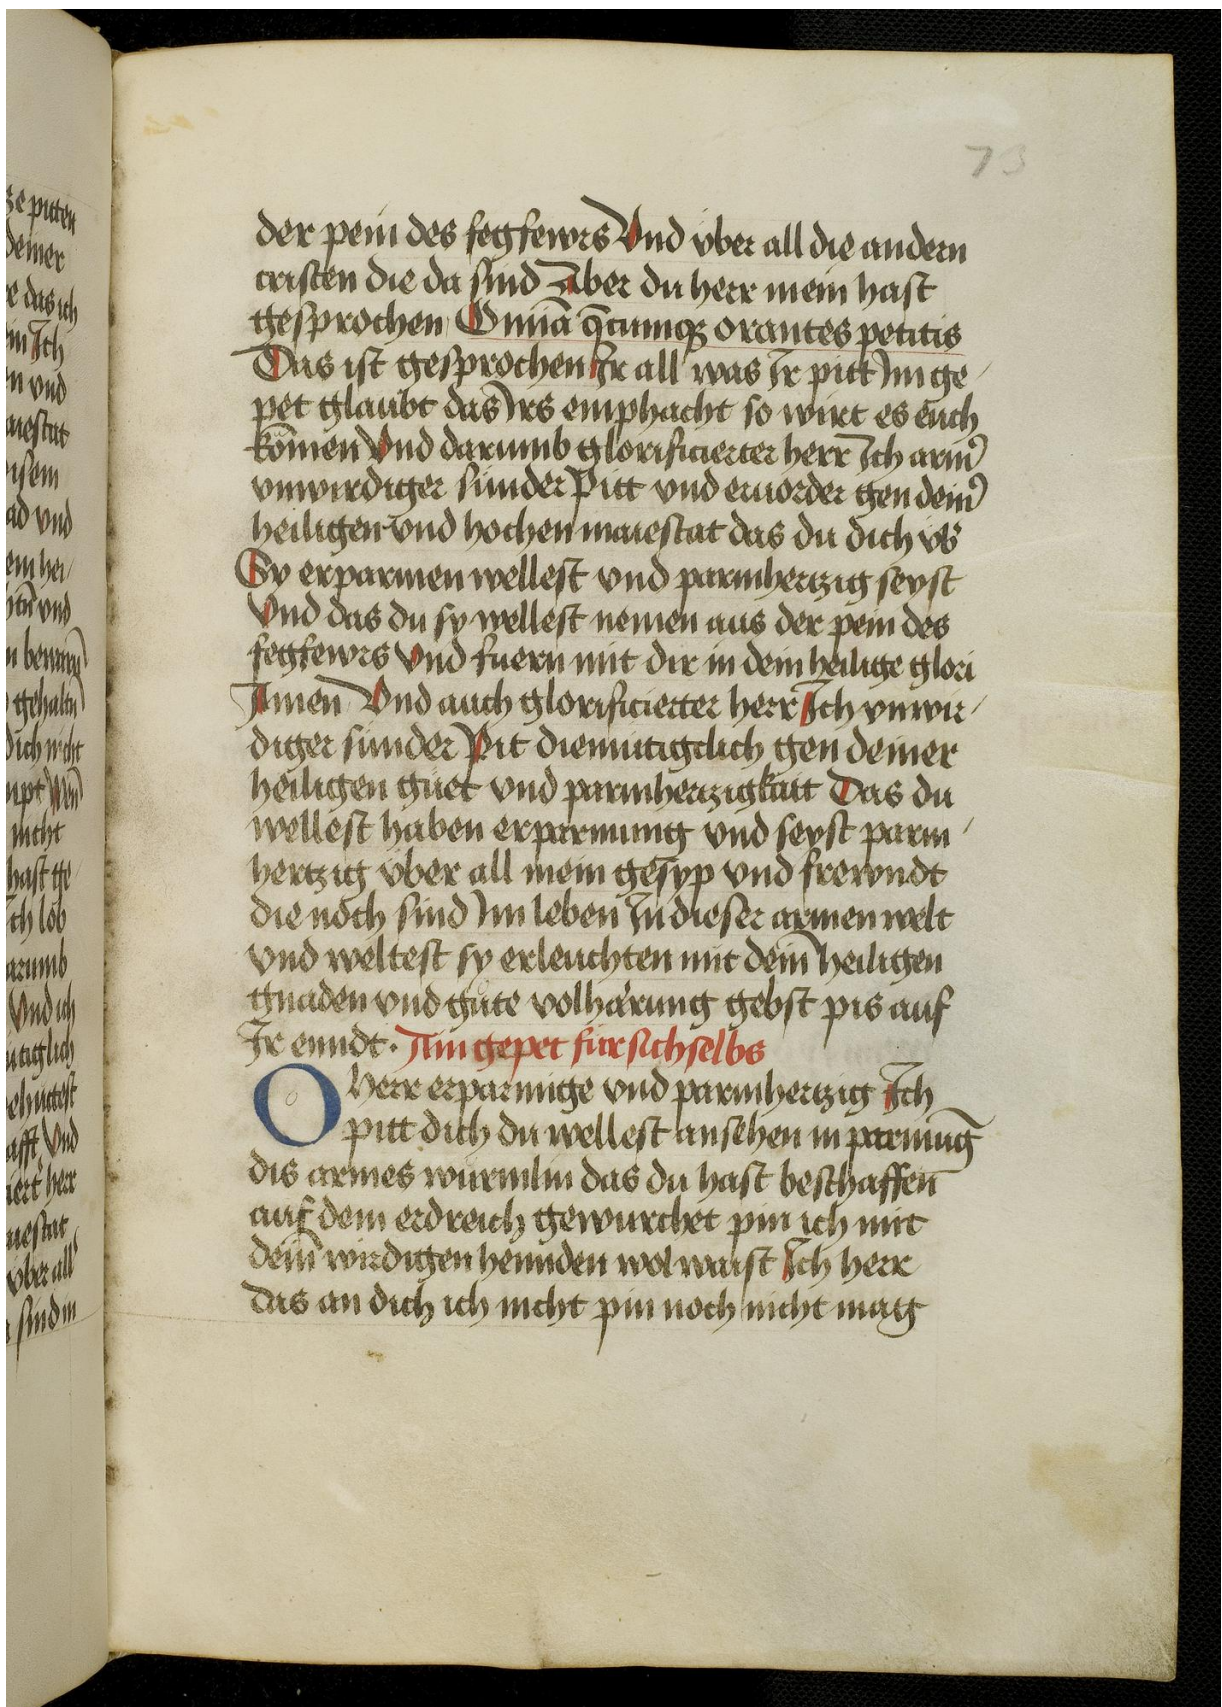 73
der pein des fegfewrs Vnd vber all die andern
cristen die da sind Aber du herr mein hast
gesprochen Omīa q̄cumqꝫ orantes petitis
Das ist gesprochen Ir all was Ir pitt Im ge-
pet glaubt das Irs emphacht so wirt es euch
kōmen Vnd darumb glorificierter herr Ich arm̄
vnwirdiger sunder Pitt vnd eruorder gen dein̄
heiligen vnd hochen maiestat das du dich vb̄
Sy erparmen wellest vnd parmhertzig seyst
Vnd das du sy wellest nemen aus der pein des
fegfewrs Vnd fuern mit dir in dein heilige glori
Amen Vnd auch glorificierter herr Ich vnwir-
diger sunder Pit diemutigclich gen deiner
heiligen guet vnd parmhertzigkait Das du
wellest haben erparmung vnd seyst parm-
hertzig vber all mein gesyp vnd frewndt
die noch sind Im leben In dieser armen welt
vnd weltest sy erleuchten mit dein̄ heiligen
gnaden vnd gute volharung gebst pis auf
Ir enndt. Ain gepet fur sich selbs
O herr erparmige vnd parmhertzig Ich
pitt dich du wellest ansehen in parmūg
dis armes wurmlin das du hast beschaffen
auf dem erdreich gewurchet pin ich mit
dein̄ wirdigen hennden wol waist Ich herr
das an dich ich nicht pin noch nicht mag